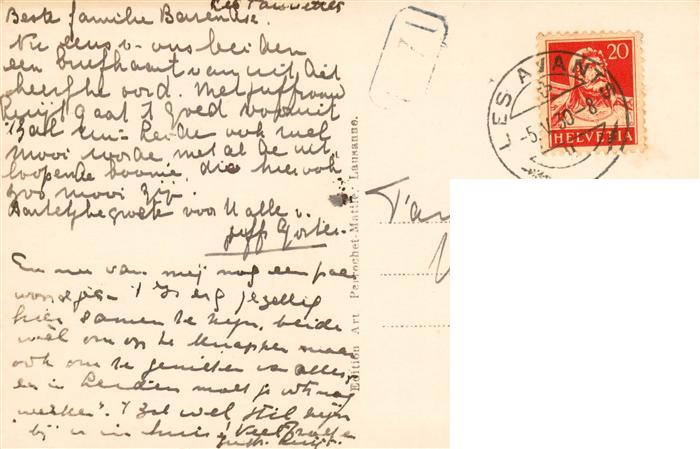 Les Avants
Beste familie Barendse.
Nu eens v. ons beiden
een briefkaart van uit dit
heerlijke oord. Met juffrouw
Kruijt gaat 't goed vooruit
't Zal in Leiden ook wel
mooi worde, met al de uit-
loopende boomen, die hier ook
zoo mooi zijn.
Hartelijke groete voor U alle v.
juff
En nu van mij nog een paar
woordjes. 't Is erg gezellig
hier samen te zijn, beide
wel om op te knappen maar
ook om te genieten van alles,
en in Leiden moet je weer
werken. 't Zal wel stil zijn
bij u in huis! Veel
juffr. Kruijt.
Edition Art Perrochet-Matile, Lausanne.
20
HELVETIA
LES AVANTS
30-8
Fam